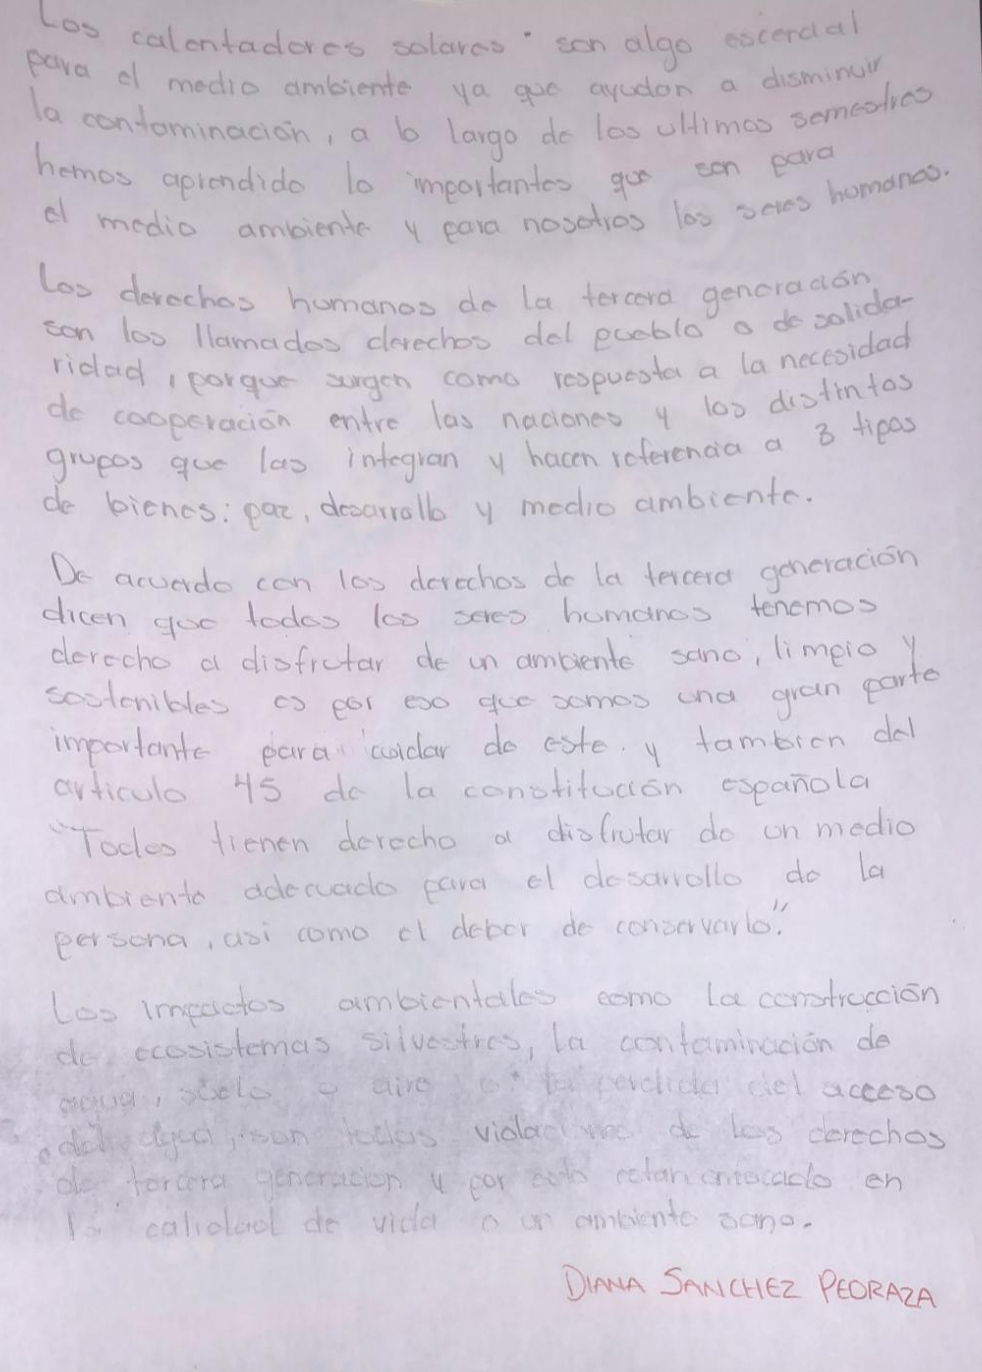 Los calentadores solares son algo escencial
para el medio ambiente ya que ayudan a disminuir
la contaminación, a lo largo de los ultimos semestres
hemos aprendido lo importantes que son para
el medio ambiente y para nosotros los seres humanos.
Los derechos humanos de la tercera generación
son los llamados derechos del pueblo o de solida-
ridad, porque surgen como respuesta a la necesidad
de cooperación entre las naciones y los distintos
grupos que las integran y hacen referencia a 3 tipos
de bienes: paz, desarrollo y medio ambiente.
De acuerdo con los derechos de la tercera generación
dicen que todos los seres humanos tenemos
derecho a disfrutar de un ambiente sano, limpio y
sostenibles es por eso que somos una gran parte
importante para cuidar de este. y tambien del
articulo 45 de la constitución española
"Todos tienen derecho a disfrutar de un medio
ambiente adecuado para el desarrollo de la
persona, asi como el deber de conservarlo."
Los impactos ambientales como la construcción
de ecosistemas silvestres, la contaminación de
agua, suelo o aire o la perdida del acceso
del agua, son todas violaciones de los derechos
de tercera generacion y por esto estan enfocado en
la calidad de vida o un ambiente sano.
DIANA SANCHEZ PEDRAZA